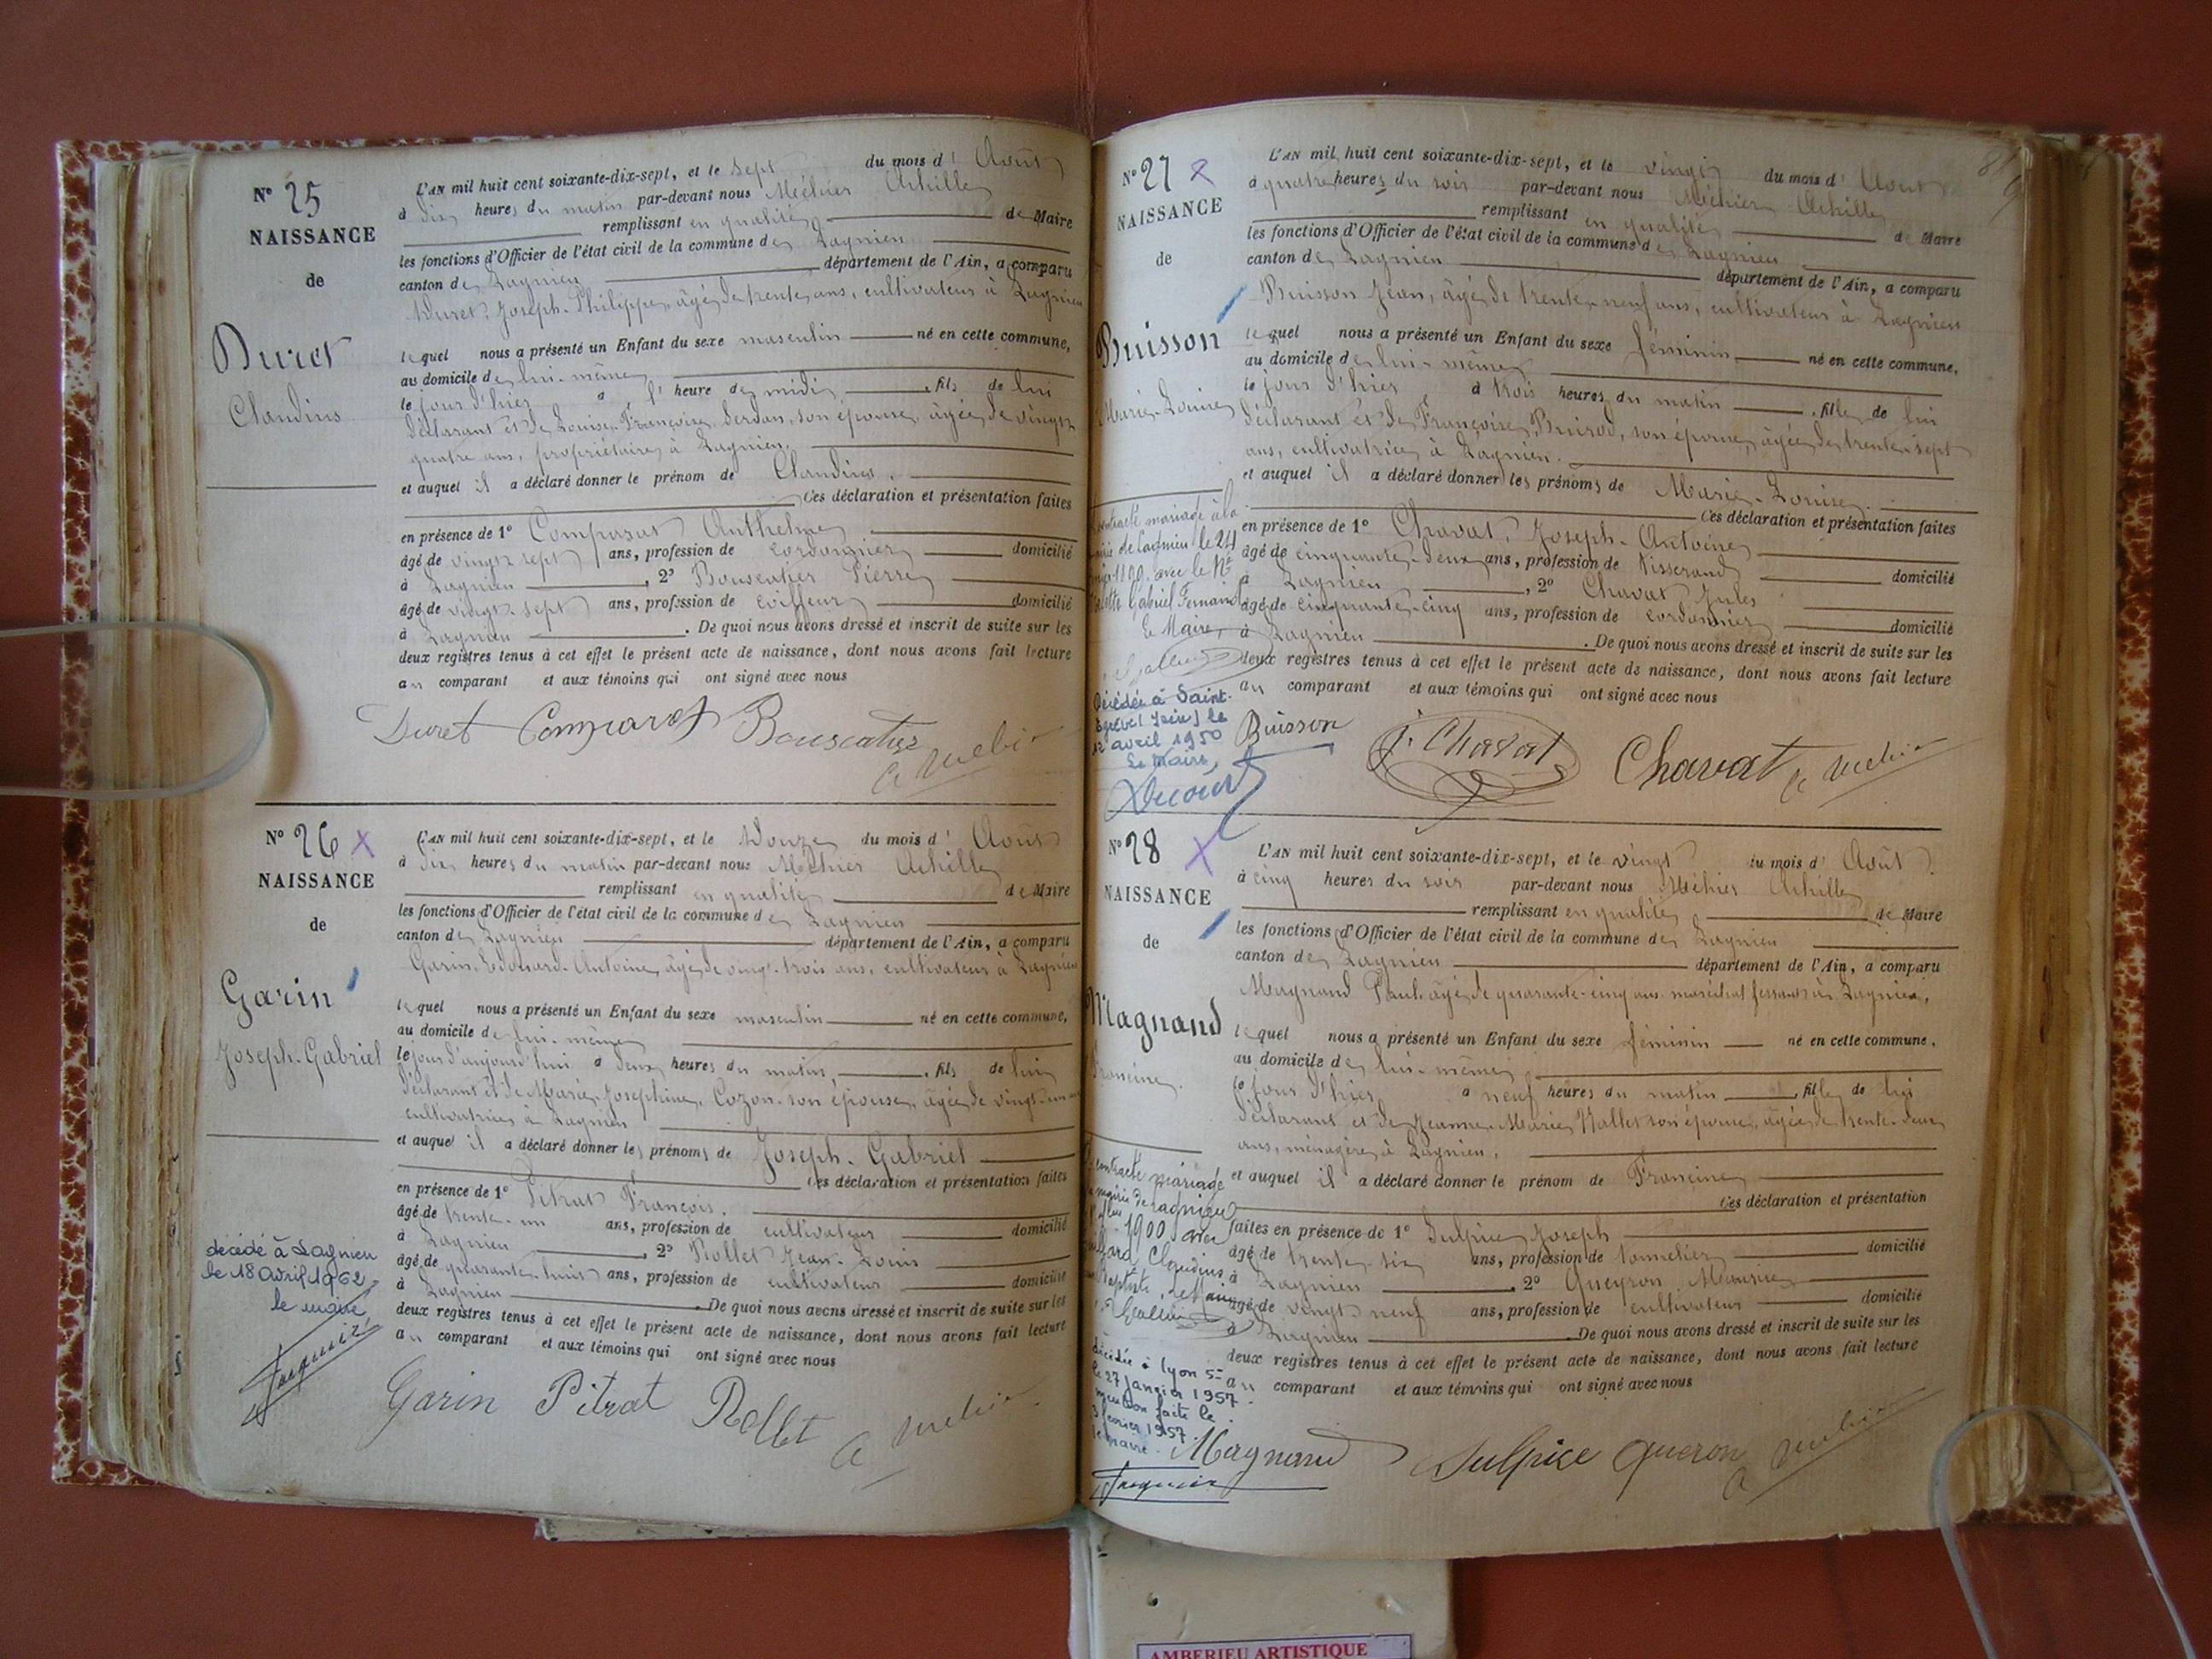 N° 25
NAISSANCE
de
Duret
Claudius
L'AN mil huit cent soixante-dix-sept, et le sept du mois d' Août
à dix heures du matin par-devant nous Méhier Achille
remplissant en qualité de Maire
les fonctions d'Officier de l'état civil de la commune de Lagnieu
canton de Lagnieu département de l'Ain, a comparu
Duret Joseph-Philippe, âgé de trente ans, cultivateur à Lagnieu
lequel nous a présenté un Enfant du sexe masculin né en cette commune,
au domicile de lui-même
le jour d'hier à l' heure de midi, fils de lui
déclarant et de Louise-Françoise, son épouse, âgée de vingt
quatre ans, propriétaire à Lagnieu.
et auquel il a déclaré donner le prénom de Claudius.
Ces déclaration et présentation faites
en présence de 1° Comparat Anthelme
âgé de vingt sept ans, profession de cordonnier domicilié
à Lagnieu, 2° Bouscatier Pierre
âgé de vingt-sept ans, profession de coiffeur domicilié
à Lagnieu. De quoi nous avons dressé et inscrit de suite sur les
deux registres tenus à cet effet le présent acte de naissance, dont nous avons fait lecture
au comparant et aux témoins qui ont signé avec nous
Duret Comparat Bouscatier
N° 26
NAISSANCE
de
Garin
Joseph-Gabriel
décédé à Lagnieu
le 18 avril 1962
le maire
L'AN mil huit cent soixante-dix-sept, et le Douze du mois d' Août
à dix heures du matin par-devant nous Méhier Achille
remplissant en qualité de Maire
les fonctions d'Officier de l'état civil de la commune de Lagnieu
canton de Lagnieu département de l'Ain, a comparu
Garin Edouard-Antoine, âgé de vingt-trois ans, cultivateur à Lagnieu
lequel nous a présenté un Enfant du sexe masculin né en cette commune,
au domicile de lui-même
le jour d'aujourd'hui à deux heures du matin, fils de lui
déclarant et de Marie-Josephine Cozon son épouse, âgée de vingt-un
cultivatrice à Lagnieu
et auquel il a déclaré donner les prénoms de Joseph-Gabriel
Ces déclaration et présentation faites
en présence de 1° Pitrat François.
âgé de trente-un ans, profession de cultivateur domicilié
à Lagnieu, 2° Rollet Jean-Louis
âgé de quarante-huit ans, profession de cultivateur domicilié
à Lagnieu. De quoi nous avons dressé et inscrit de suite sur les
deux registres tenus à cet effet le présent acte de naissance, dont nous avons fait lecture
au comparant et aux témoins qui ont signé avec nous
Garin Pitrat Rollet
N° 27
NAISSANCE
de
Buisson
Marie-Louise
contracté mariage à la
de Lagnieu le 24
avec le Né
Gabriel Fernand
Le Maire,
Décédée à Saint-
le
avril 1950
Le Maire,
L'AN mil huit cent soixante-dix-sept, et le vingt du mois d' Août
à quatre heures du soir par-devant nous Méhier Achille
remplissant en qualité de Maire
les fonctions d'Officier de l'état civil de la commune de Lagnieu
canton de Lagnieu département de l'Ain, a comparu
Buisson Jean, âgé de trente-neuf ans, cultivateur à Lagnieu
lequel nous a présenté un Enfant du sexe féminin né en cette commune,
au domicile de lui-même
le jour d'hier à trois heures du matin, fille de lui
déclarant et de Françoise, son épouse, âgée de trente-sept
ans, cultivatrice à Lagnieu.
et auquel il a déclaré donner les prénoms de Marie-Louise.
Ces déclaration et présentation faites
en présence de 1° Chavat, Joseph-Antoine
âgé de cinquante-deux ans, profession de Tisserand domicilié
à Lagnieu, 2° Chavat Jules
âgé de cinquante-cinq ans, profession de cordonnier domicilié
à Lagnieu. De quoi nous avons dressé et inscrit de suite sur les
deux registres tenus à cet effet le présent acte de naissance, dont nous avons fait lecture
au comparant et aux témoins qui ont signé avec nous
Buisson J. Chavat Chavat
N° 28
NAISSANCE
de
Magnand
Francine.
contracté mariage
mairie de Lagnieu
1900 avec
Claudius
Baptiste, Le Maire
décédée à Lyon 5e
le 27 janvier 1957.
mention faite le
février 1957.
le maire.
L'AN mil huit cent soixante-dix-sept, et le vingt du mois d' Août
à cinq heures du soir par-devant nous Méhier Achille
remplissant en qualité de Maire
les fonctions d'Officier de l'état civil de la commune de Lagnieu
canton de Lagnieu département de l'Ain, a comparu
Magnand Paul âgé de quarante-cinq ans maréchal ferrant à Lagnieu,
lequel nous a présenté un Enfant du sexe féminin né en cette commune,
au domicile de lui-même,
le jour d'hier à neuf heures du matin, fille de lui
déclarant et de Jeanne-Marie Hallet son épouse, âgée de trente-deux
ans, ménagère à Lagnieu,
et auquel il a déclaré donner le prénom de Francine
Ces déclaration et présentation
faites en présence de 1° Sulpice Joseph
âgé de trente-six ans, profession de tonnelier domicilié
à Lagnieu, 2° Queyron Maurice
âgé de vingt neuf ans, profession de cultivateur domicilié
à Lagnieu. De quoi nous avons dressé et inscrit de suite sur les
deux registres tenus à cet effet le présent acte de naissance, dont nous avons fait lecture
au comparant et aux témoins qui ont signé avec nous
Magnand Sulpice Queron
AMBERIEU ARTISTIQUE